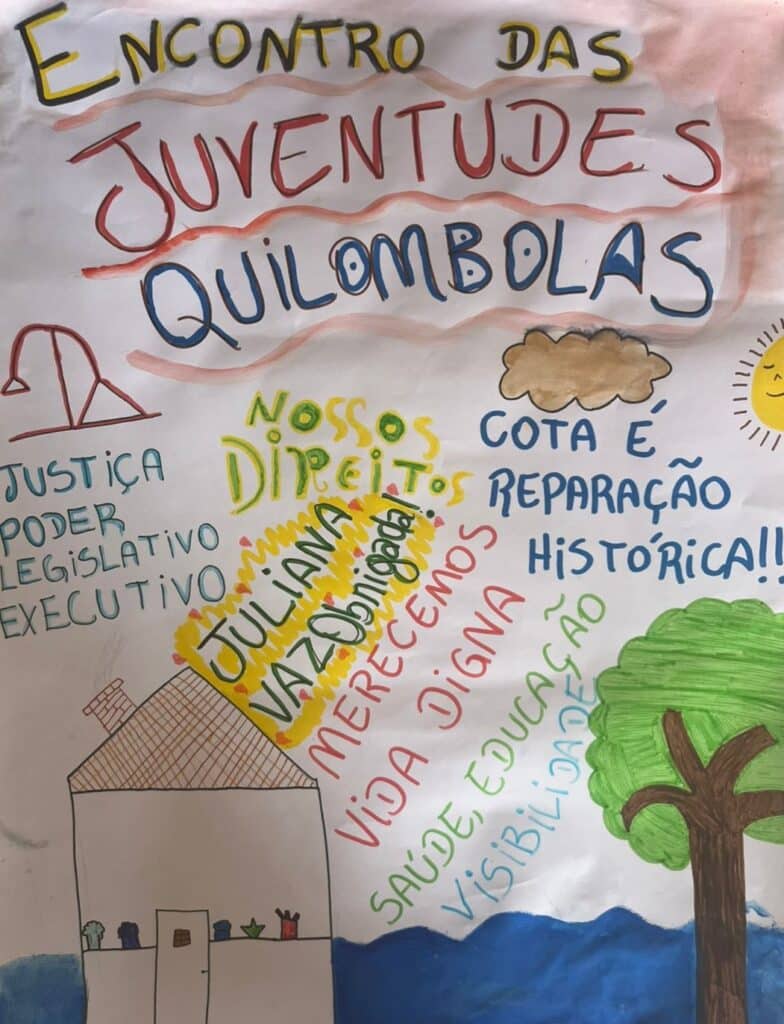 ENCONTRO DAS
JUVENTUDES
QUILOMBOLAS
NOSSOS
DIREITOS
COTA É
REPARAÇÃO
HISTÓRICA!!
JUSTIÇA
PODER
LEGISLATIVO
EXECUTIVO
JULIANA
VAZ Obrigada!
MERECEMOS
VIDA DIGNA
SAÚDE, EDUCAÇÃO
VISIBILIDADE